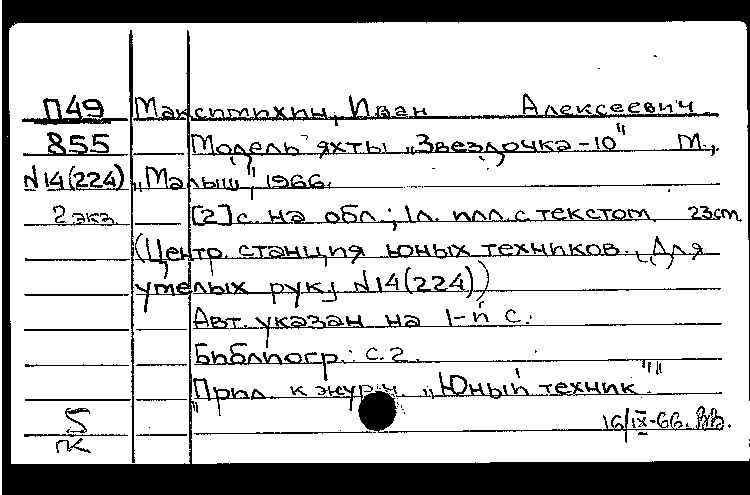 П49 Максимихин, Иван Алексеевич
855 Модель яхты „Звездочка-10" М.,
N14(224) „Малыш", 1966.
2 экз. [2]с. на обл.; 1л. илл. с текстом. 23см.
(Центр. станция юных техников. „Для
умелых рук„ N14(224))
Авт. указан на 1-й с.
Библиогр.: с. 2.
"Прил. к журн. „Юный техник".""
5
ПК
16/IX-66.